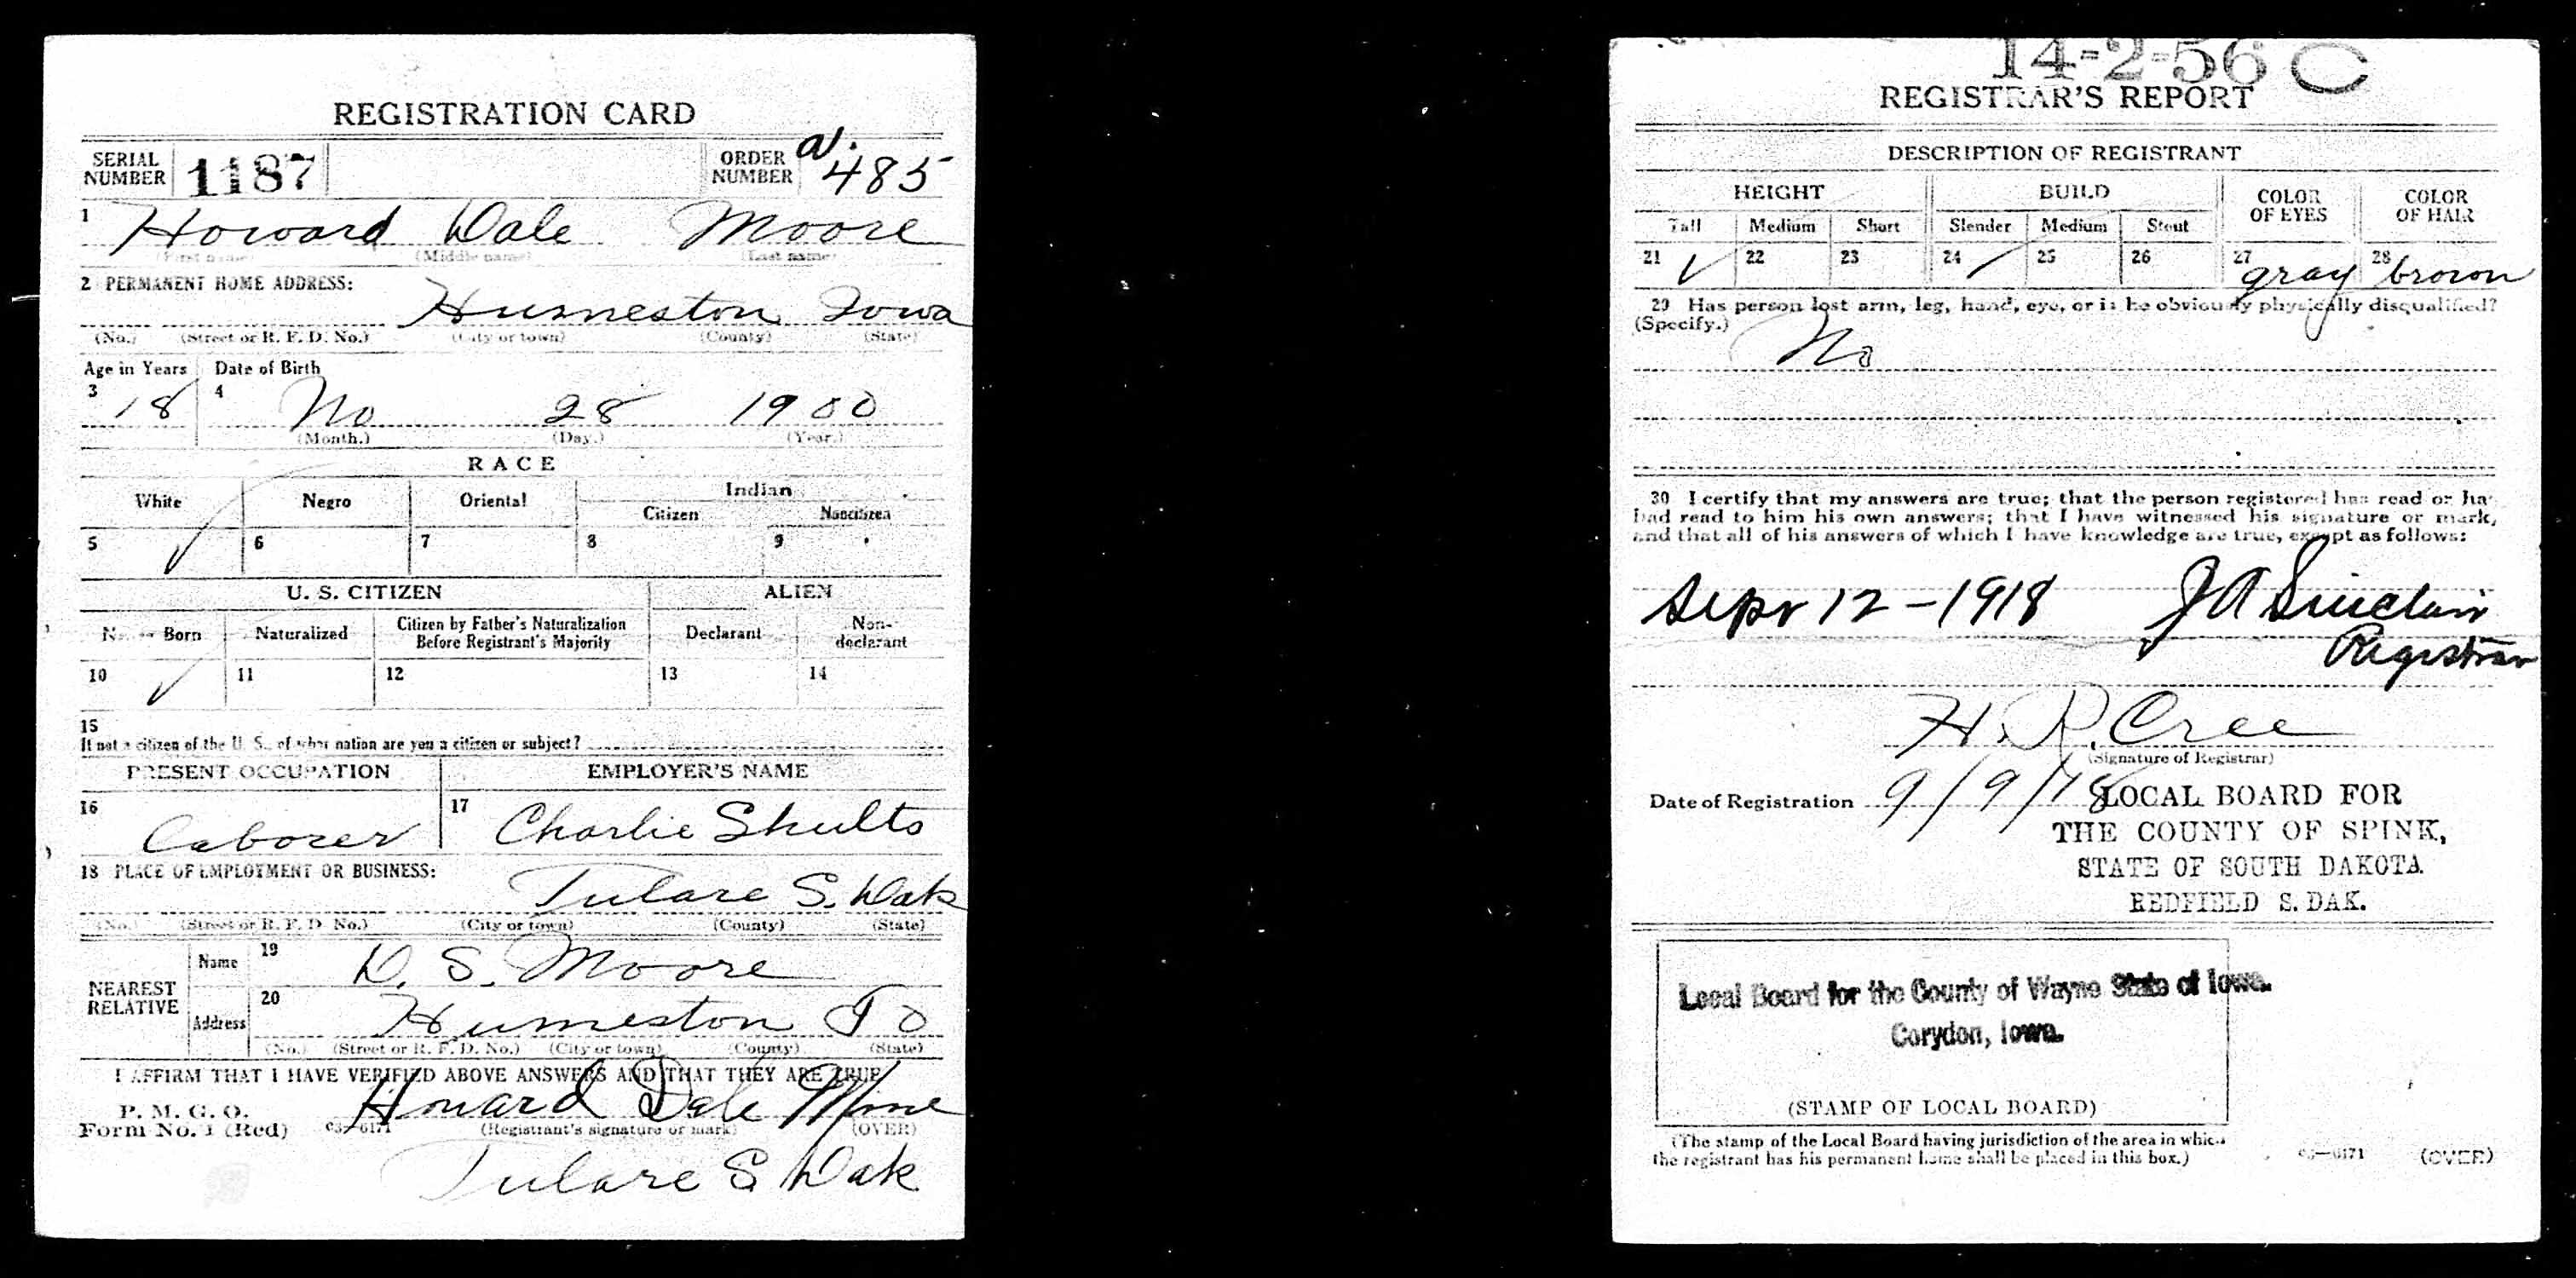 REGISTRATION CARD
SERIAL NUMBER 1187 ORDER NUMBER a. 485
1 Howard Dale Moore
(First name) (Middle name) (Last name)
2 PERMANENT HOME ADDRESS:
Humeston Iowa
(No.) (Street or R. F. D. No.) (City or town) (County) (State)
Age in Years Date of Birth
3 18 4 No 28 1900
(Month.) (Day.) (Year.)
RACE
White Negro Oriental Indian
Citizen Noncitizen
5 ✓ 6 7 8 9
U. S. CITIZEN ALIEN
Born Naturalized Citizen by Father's Naturalization Before Registrant's Majority Declarant Non-declarant
10 ✓ 11 12 13 14
15
If not a citizen of the U. S., of what nation are you a citizen or subject?
PRESENT OCCUPATION EMPLOYER'S NAME
16 laborer 17 Charlie Shults
18 PLACE OF EMPLOYMENT OR BUSINESS:
Tulare S. Dak
(No.) (Street or R. F. D. No.) (City or town) (County) (State)
NEAREST RELATIVE
Name 19 D. S. Moore
Address 20 Humeston
(No.) (Street or R. F. D. No.) (City or town) (County) (State)
I AFFIRM THAT I HAVE VERIFIED ABOVE ANSWERS AND THAT THEY ARE TRUE
P. M. G. O.
Form No. 1 (Red) 03—6171 Howard Dale Moore
(Registrant's signature or mark) (OVER)
Tulare S. Dak
14-2-56 C
REGISTRAR'S REPORT
DESCRIPTION OF REGISTRANT
HEIGHT BUILD COLOR OF EYES COLOR OF HAIR
Tall Medium Short Slender Medium Stout
21 ✓ 22 23 24 ✓ 25 26 27 gray 28 brown
29 Has person lost arm, leg, hand, eye, or is he obviously physically disqualified?
(Specify.)
No
30 I certify that my answers are true; that the person registered has read or has
had read to him his own answers; that I have witnessed his signature or mark,
and that all of his answers of which I have knowledge are true, except as follows:
Sepr 12-1918 J A Sinclair
Registrar
H. R. Cree
(Signature of Registrar)
Date of Registration 9/9/18
LOCAL BOARD FOR
THE COUNTY OF SPINK,
STATE OF SOUTH DAKOTA
REDFIELD S. DAK.
Local Board for the County of Wayne State of Iowa.
Corydon, Iowa.
(STAMP OF LOCAL BOARD)
(The stamp of the Local Board having jurisdiction of the area in which
the registrant has his permanent home shall be placed in this box.)
03—6171 (OVER)